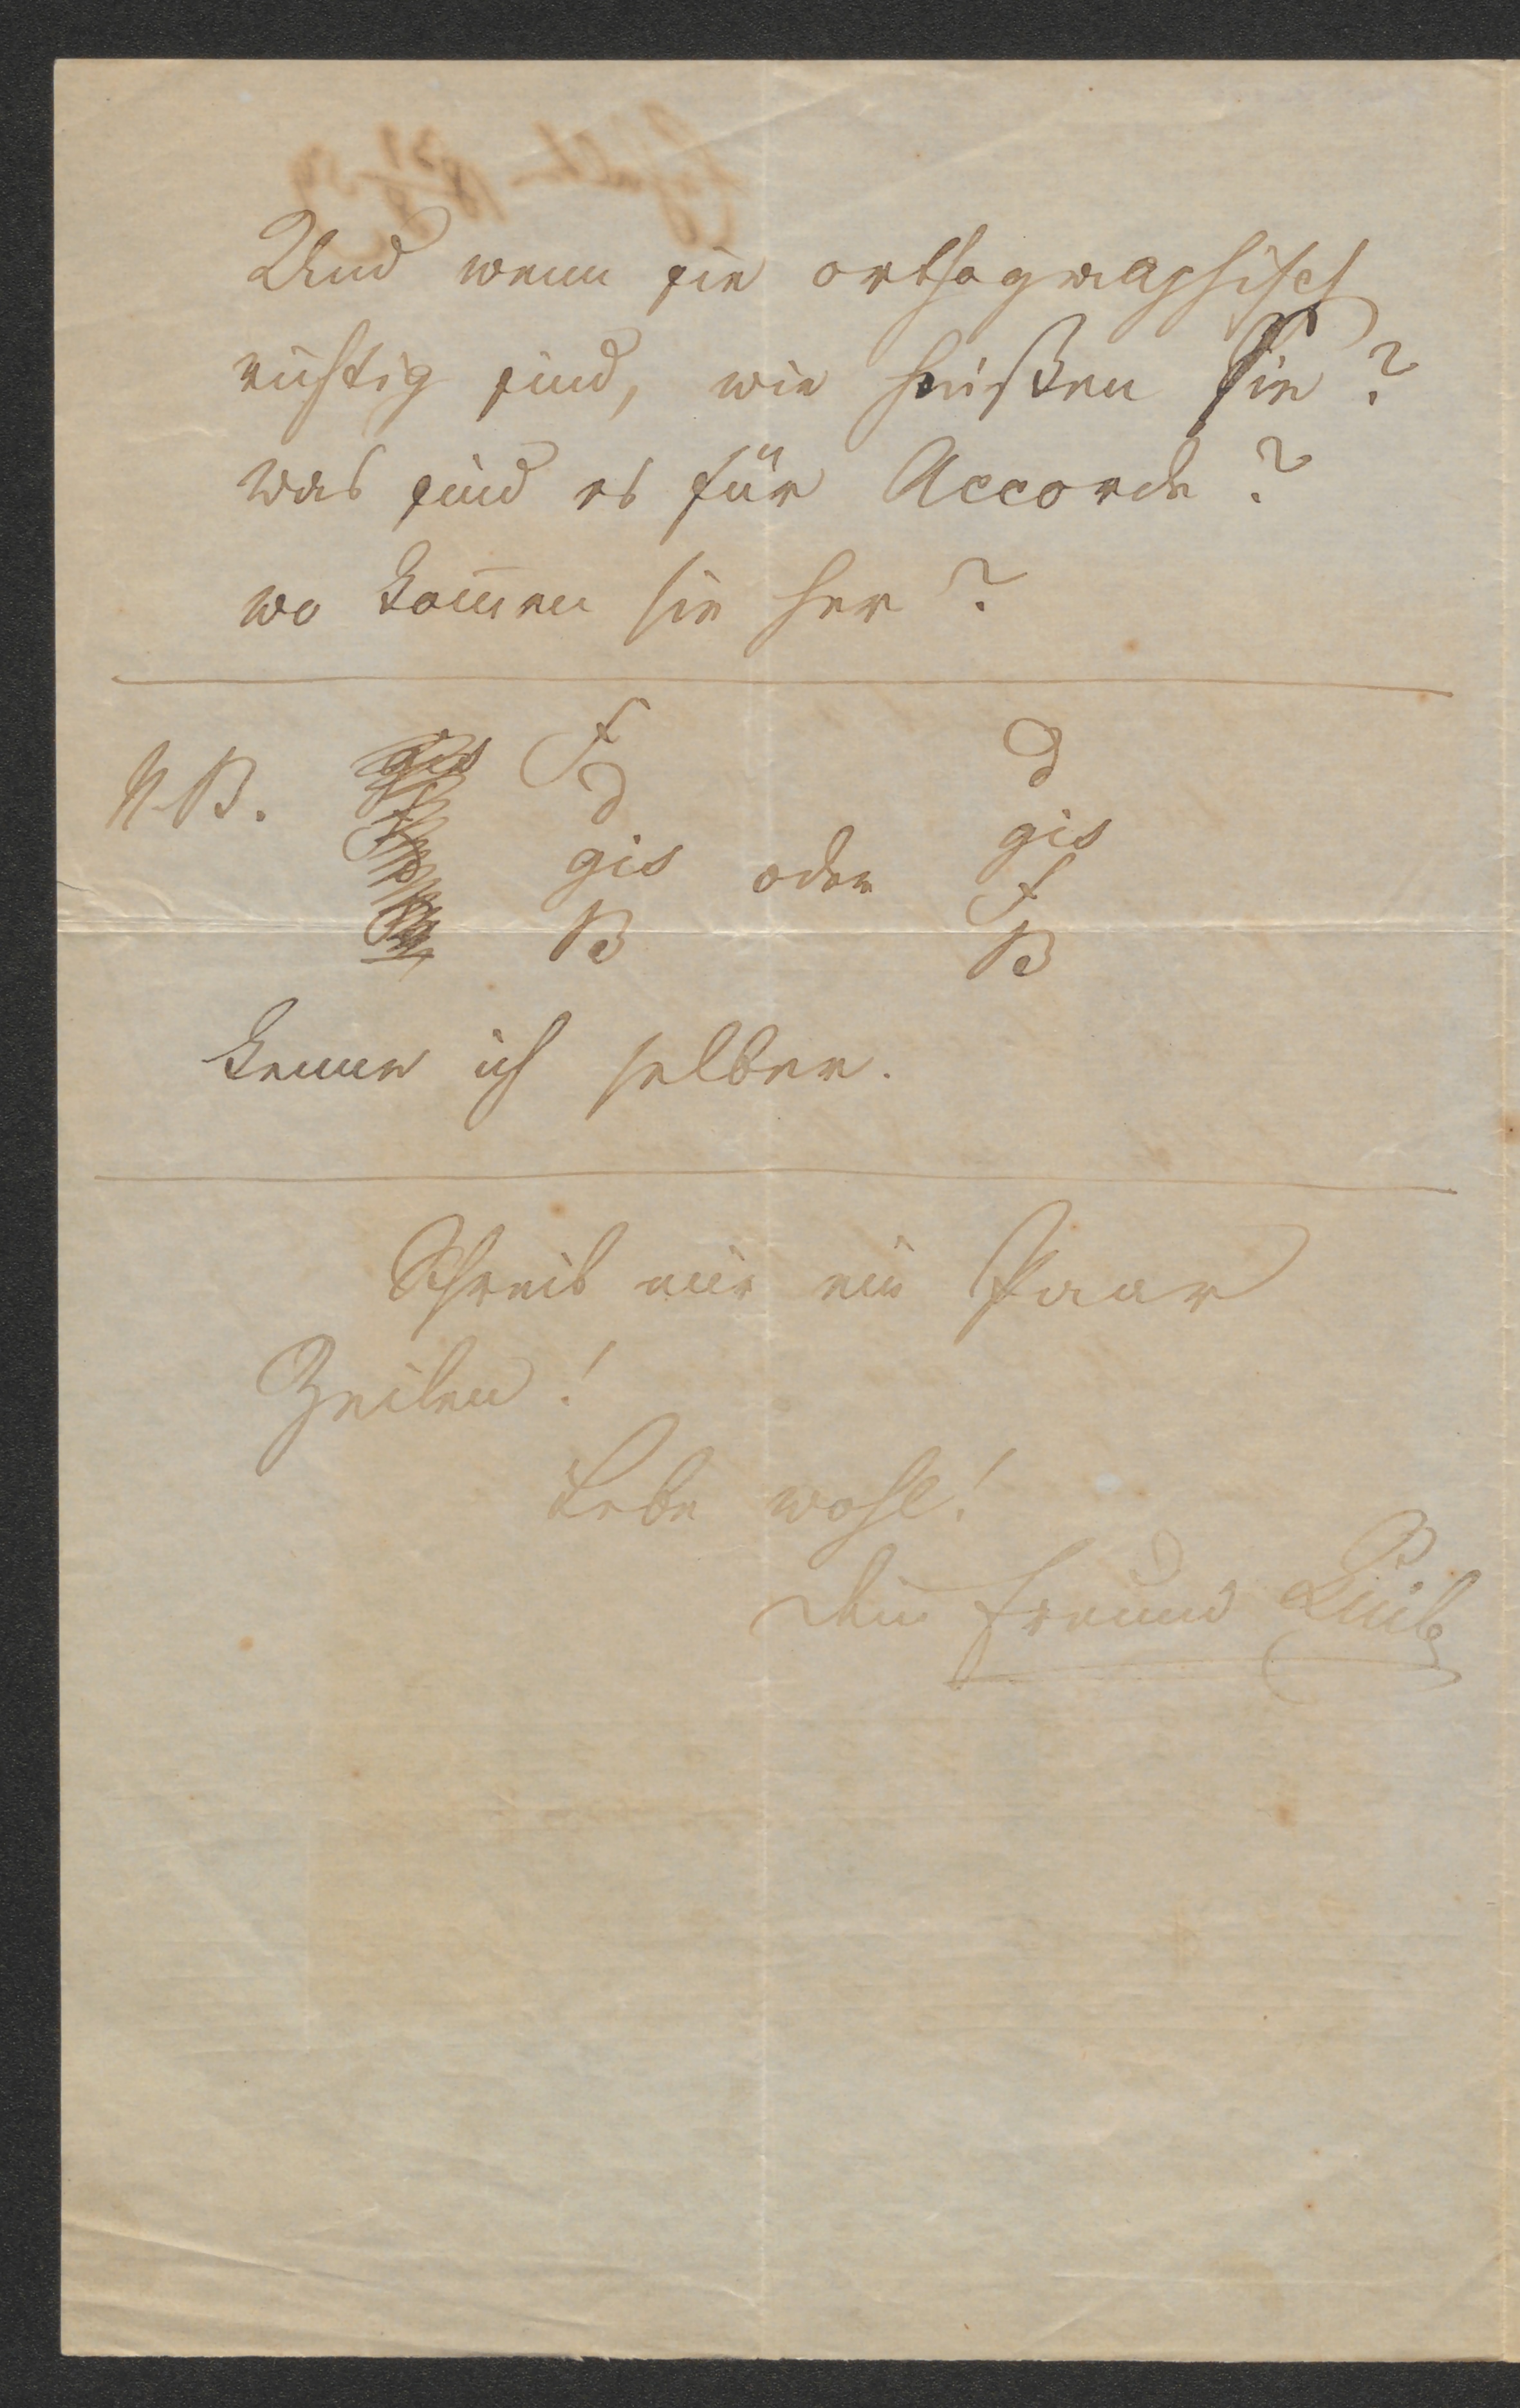 Und wenn sie orthographisch
richtig sind, wie heißen sie?
was sind es für Accorde?
wo kom̄en sie her?
NB. F d
d gis
gis oder F
B B
kenne ich selber.
Schreib mir ein Paar
Zeilen!
Lebe wohl!
Dein Freund